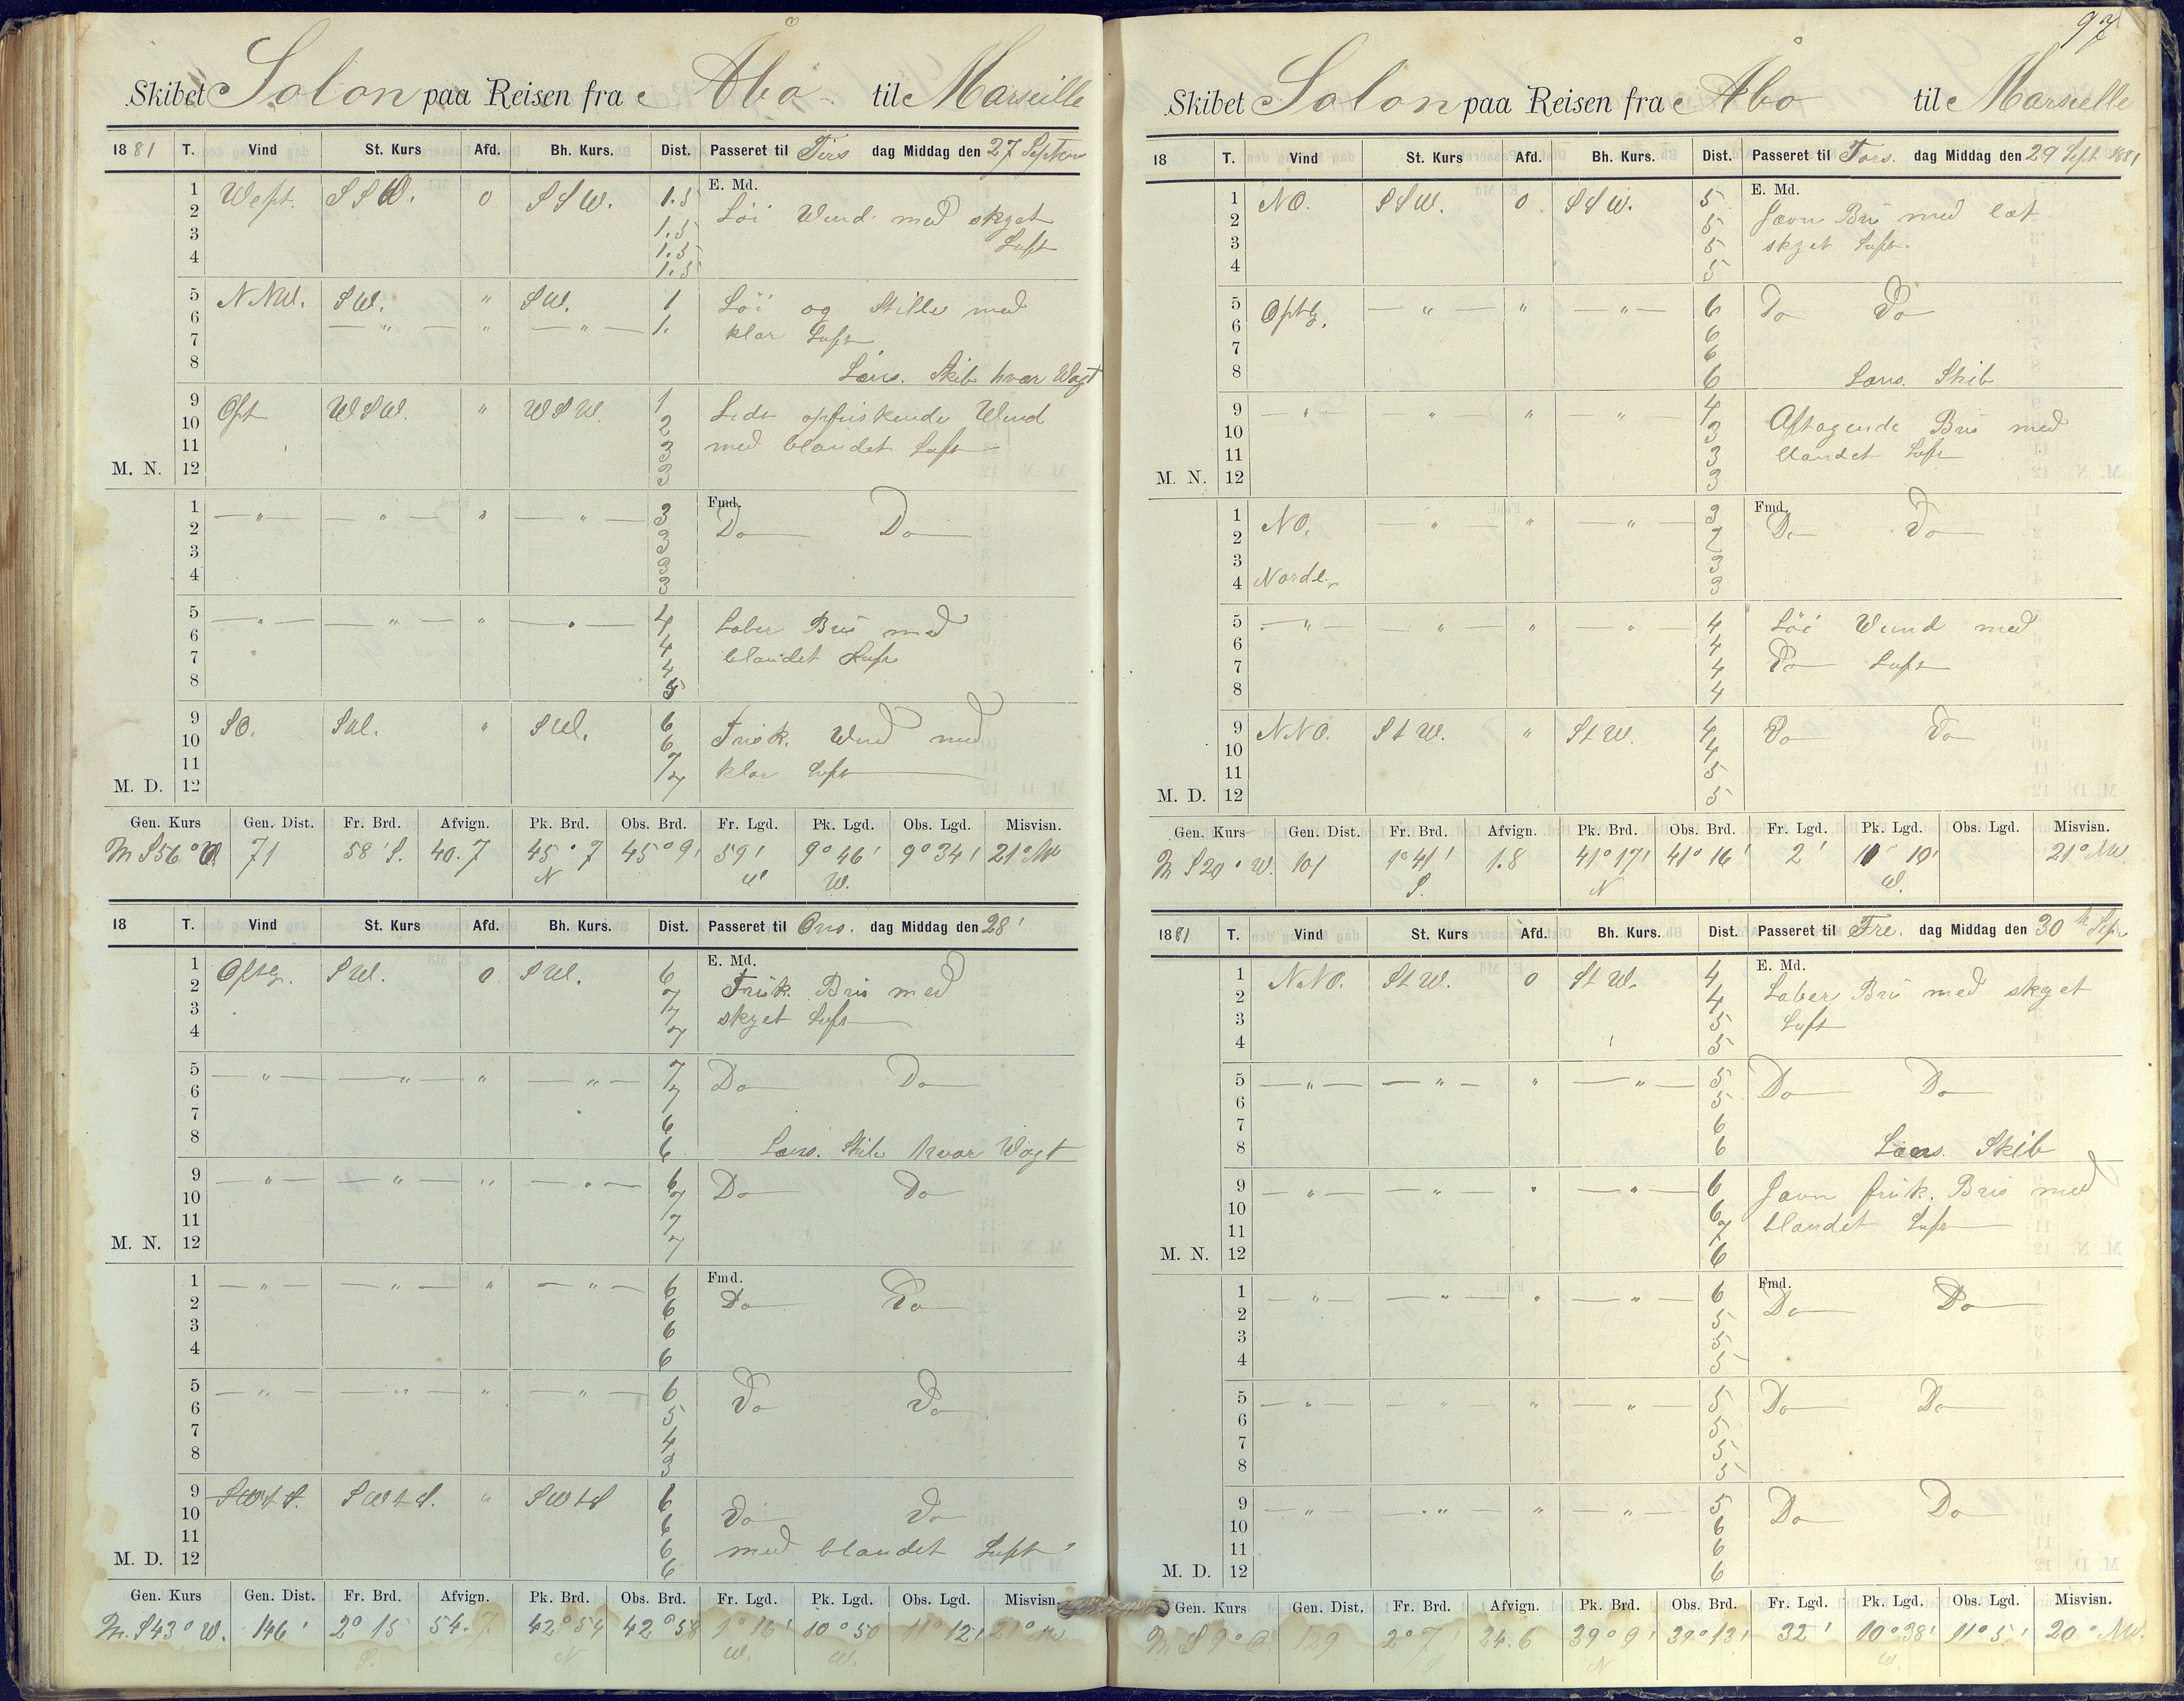 97
Skibet Solon paa Reisen fra Åbo til Marseille
1881 T. Vind St. Kurs Afd. Bh. Kurs. Dist. Passeret til Tirs dag Middag den 27 Septem
1 West. SSW. 0 SSW. 1.5 E. Md.
2 1.5 Löi Wind med skyet
3 1.5 Luft
4 1.5
5 NNW. SW. " SW. 1 Löi og Stille med
6 — " — " — " — 1. klar Luft
7
8 Læns. Skib hvær Wagt
9 Ost WSW. " WSW. 1 Lidt opfriskende Wind
10 2 med blandet Luft
11 3
M. N. 12 3
1 — " — — " — " — " — 3 Fmd.
2 3 Do Do
3 3
4 3
5 — " — — " — " — " — 4 Laber Bris med
6 4 blandet Luft
7 4
8 5
9 SO. SW. " SW. 6 Frisk. Wind med
10 6 klar Luft
11 7
M. D. 12 7
Gen. Kurs Gen. Dist. Fr. Brd. Afvign. Pk. Brd. Obs. Brd. Fr. Lgd. Pk. Lgd. Obs. Lgd. Misvisn.
M S56° W 71 58' S. 40.7 45° 7 45° 9' 59' 9° 46' 9° 34' 21° NW
N W W.
18 T. Vind St. Kurs Afd. Bh. Kurs. Dist. Passeret til Ons. dag Middag den 28'
1 Ostlg. SW. 0 SW. 6 E. Md.
2 7 Frisk. Bris med
3 7 skyet Luft
4 7
5 — " — — " — " — " — 7 Do Do
6 7
7 6
8 6 Læns. Skib hvær Wagt
9 — " — — " — " — " — 6 Do Do
10 7
11 7
M. N. 12 7
1 — " — — " — " — " — 6 Fmd.
2 6 Do Do
3 6
4 6
5 — " — — " — " — " — 6 Do Do
6 5
7 4
8 3
9 SWtS. SWtS. " SWtS 6 Do Do
10 6
11 6 med blandet Luft
M. D. 12 6
Gen. Kurs Gen. Dist. Fr. Brd. Afvign. Pk. Brd. Obs. Brd. Fr. Lgd. Pk. Lgd. Obs. Lgd. Misvisn.
M. S43° W. 146' 2° 15 54.7 42° 54 42° 58 1° 16' 10° 50 11° 12' 21° NW
S. N W. W.
Skibet Solon paa Reisen fra Åbo til Marseille
18 T. Vind St. Kurs Afd. Bh. Kurs. Dist. Passeret til Tors. dag Middag den 29 Sept 1881
1 NO. SSW. 0 SSW. 5 E. Md.
2 5 Jævn Bris med let
3 5 skyet Luft.
4 5
5 Ostlg. — " — " — " — 6 Do Do
6 6
7 6
8 6 Læns. Skib
9 — " — " " — " — 4 Aftagende Bris med
10 3 blandet Luft
11 3
M. N. 12 3
1 NO. — " — " " — 3 Fmd.
2 2 Do Do
3 3
4 Nordl. 3
5 — " — — " — " " — 4 Löi Wind med
6 4 Do Luft
7 4
8 4
9 NNO. StW. " StW. 4 Do Do
10 4
11 5
M. D. 12 5
Gen. Kurs Gen. Dist. Fr. Brd. Afvign. Pk. Brd. Obs. Brd. Fr. Lgd. Pk. Lgd. Obs. Lgd. Misvisn.
M S20° W. 101 1° 41' 1.8 41° 17' 41° 16' 2' 11° 10' 21° NW.
S. N W.
1881 T. Vind St. Kurs Afd. Bh. Kurs. Dist. Passeret til Fre. dag Middag den 30te Sept
1 NNO. StW. 0 StW. 4 E. Md.
2 4 Laber Bris med skyet
3 5 Luft
4 5
5 — " — — " — " — " — 5 Do Do
6 5
7 6
8 6 Læns. Skib
9 — " — — " — " — " — 6 Jævn frisk. Bris med
10 6 blandet Luft
11 7
M. N. 12 6
1 — " — — " — " — " — 6 Fmd.
2 5 Do Do
3 5
4 5
5 — " — — " — " — " — 5 Do Do
6 5
7 5
8 5
9 — " — — " — " — " — 5 Do Do
10 6
11 6
M. D. 12 6
Gen. Kurs Gen. Dist. Fr. Brd. Afvign. Pk. Brd. Obs. Brd. Fr. Lgd. Pk. Lgd. Obs. Lgd. Misvisn.
M S 9° O. 129 2° 7' 24.6 39° 9' 39° 13' 32' 10° 38' 11° 5' 20° NW.
S N W.